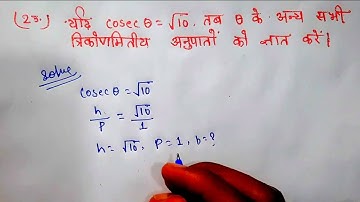 (23.) यदि cosec θ = √10, तब θ के अन्य सभी
त्रिकोणमितीय अनुपातों को ज्ञात करें।
Solve
cosec θ = √10
h/p = √10/1
h = √10, p = 1, b = ?